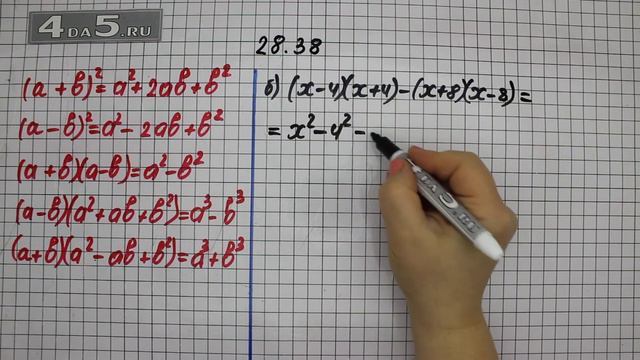 4DA5.RU
28.38
(a + b)² = a² + 2ab + b²
(a - b)² = a² - 2ab + b²
(a + b)(a - b) = a² - b²
(a - b)(a² + ab + b²) = a³ - b³
(a + b)(a² - ab + b²) = a³ + b³
б) (x - 4)(x + 4) - (x + 8)(x - 8) =
= x² - 4² -
4DA5.RU